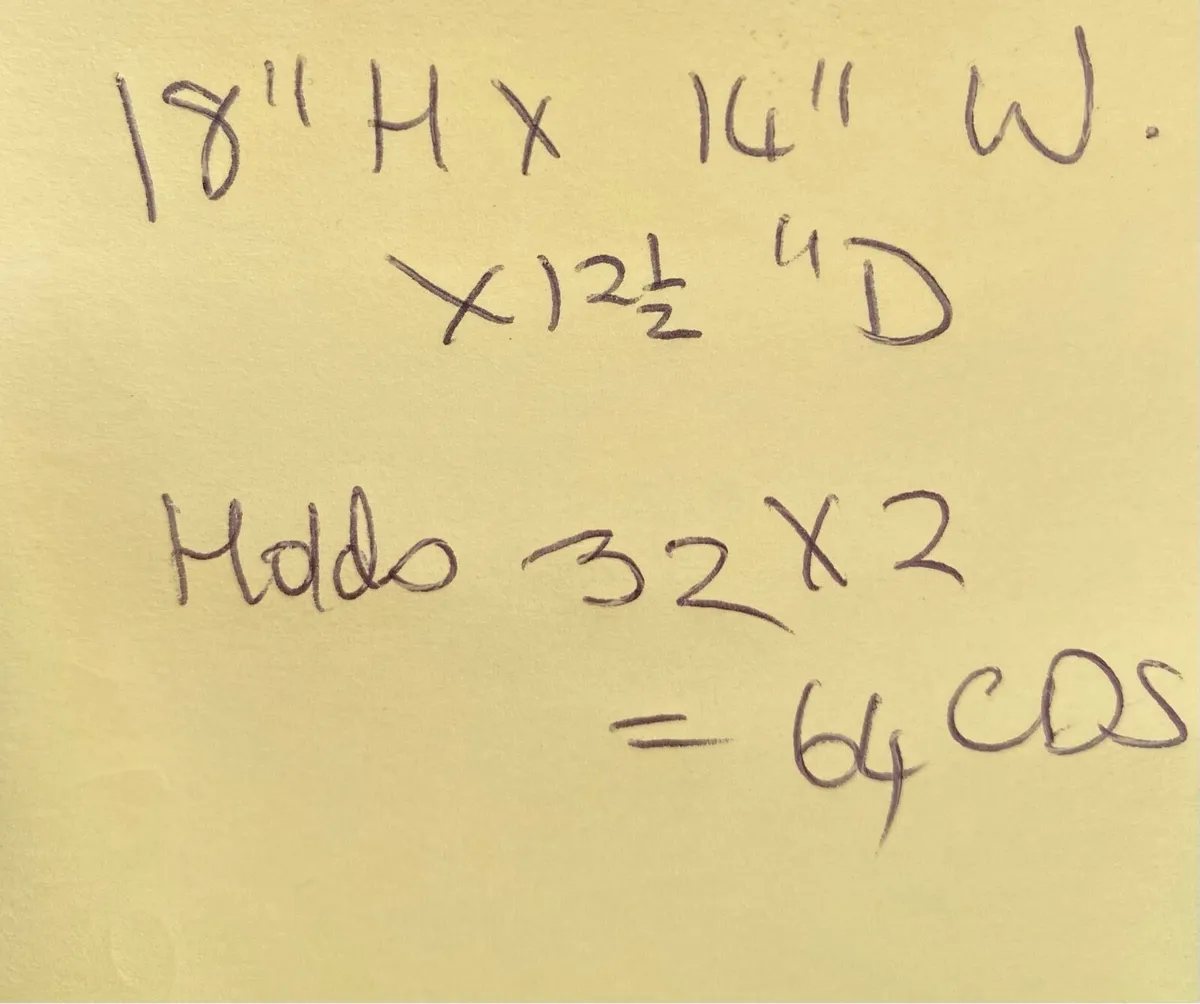 18" H X 14" W.
X 12½ "D
Holds 32 X 2
= 64 CDS